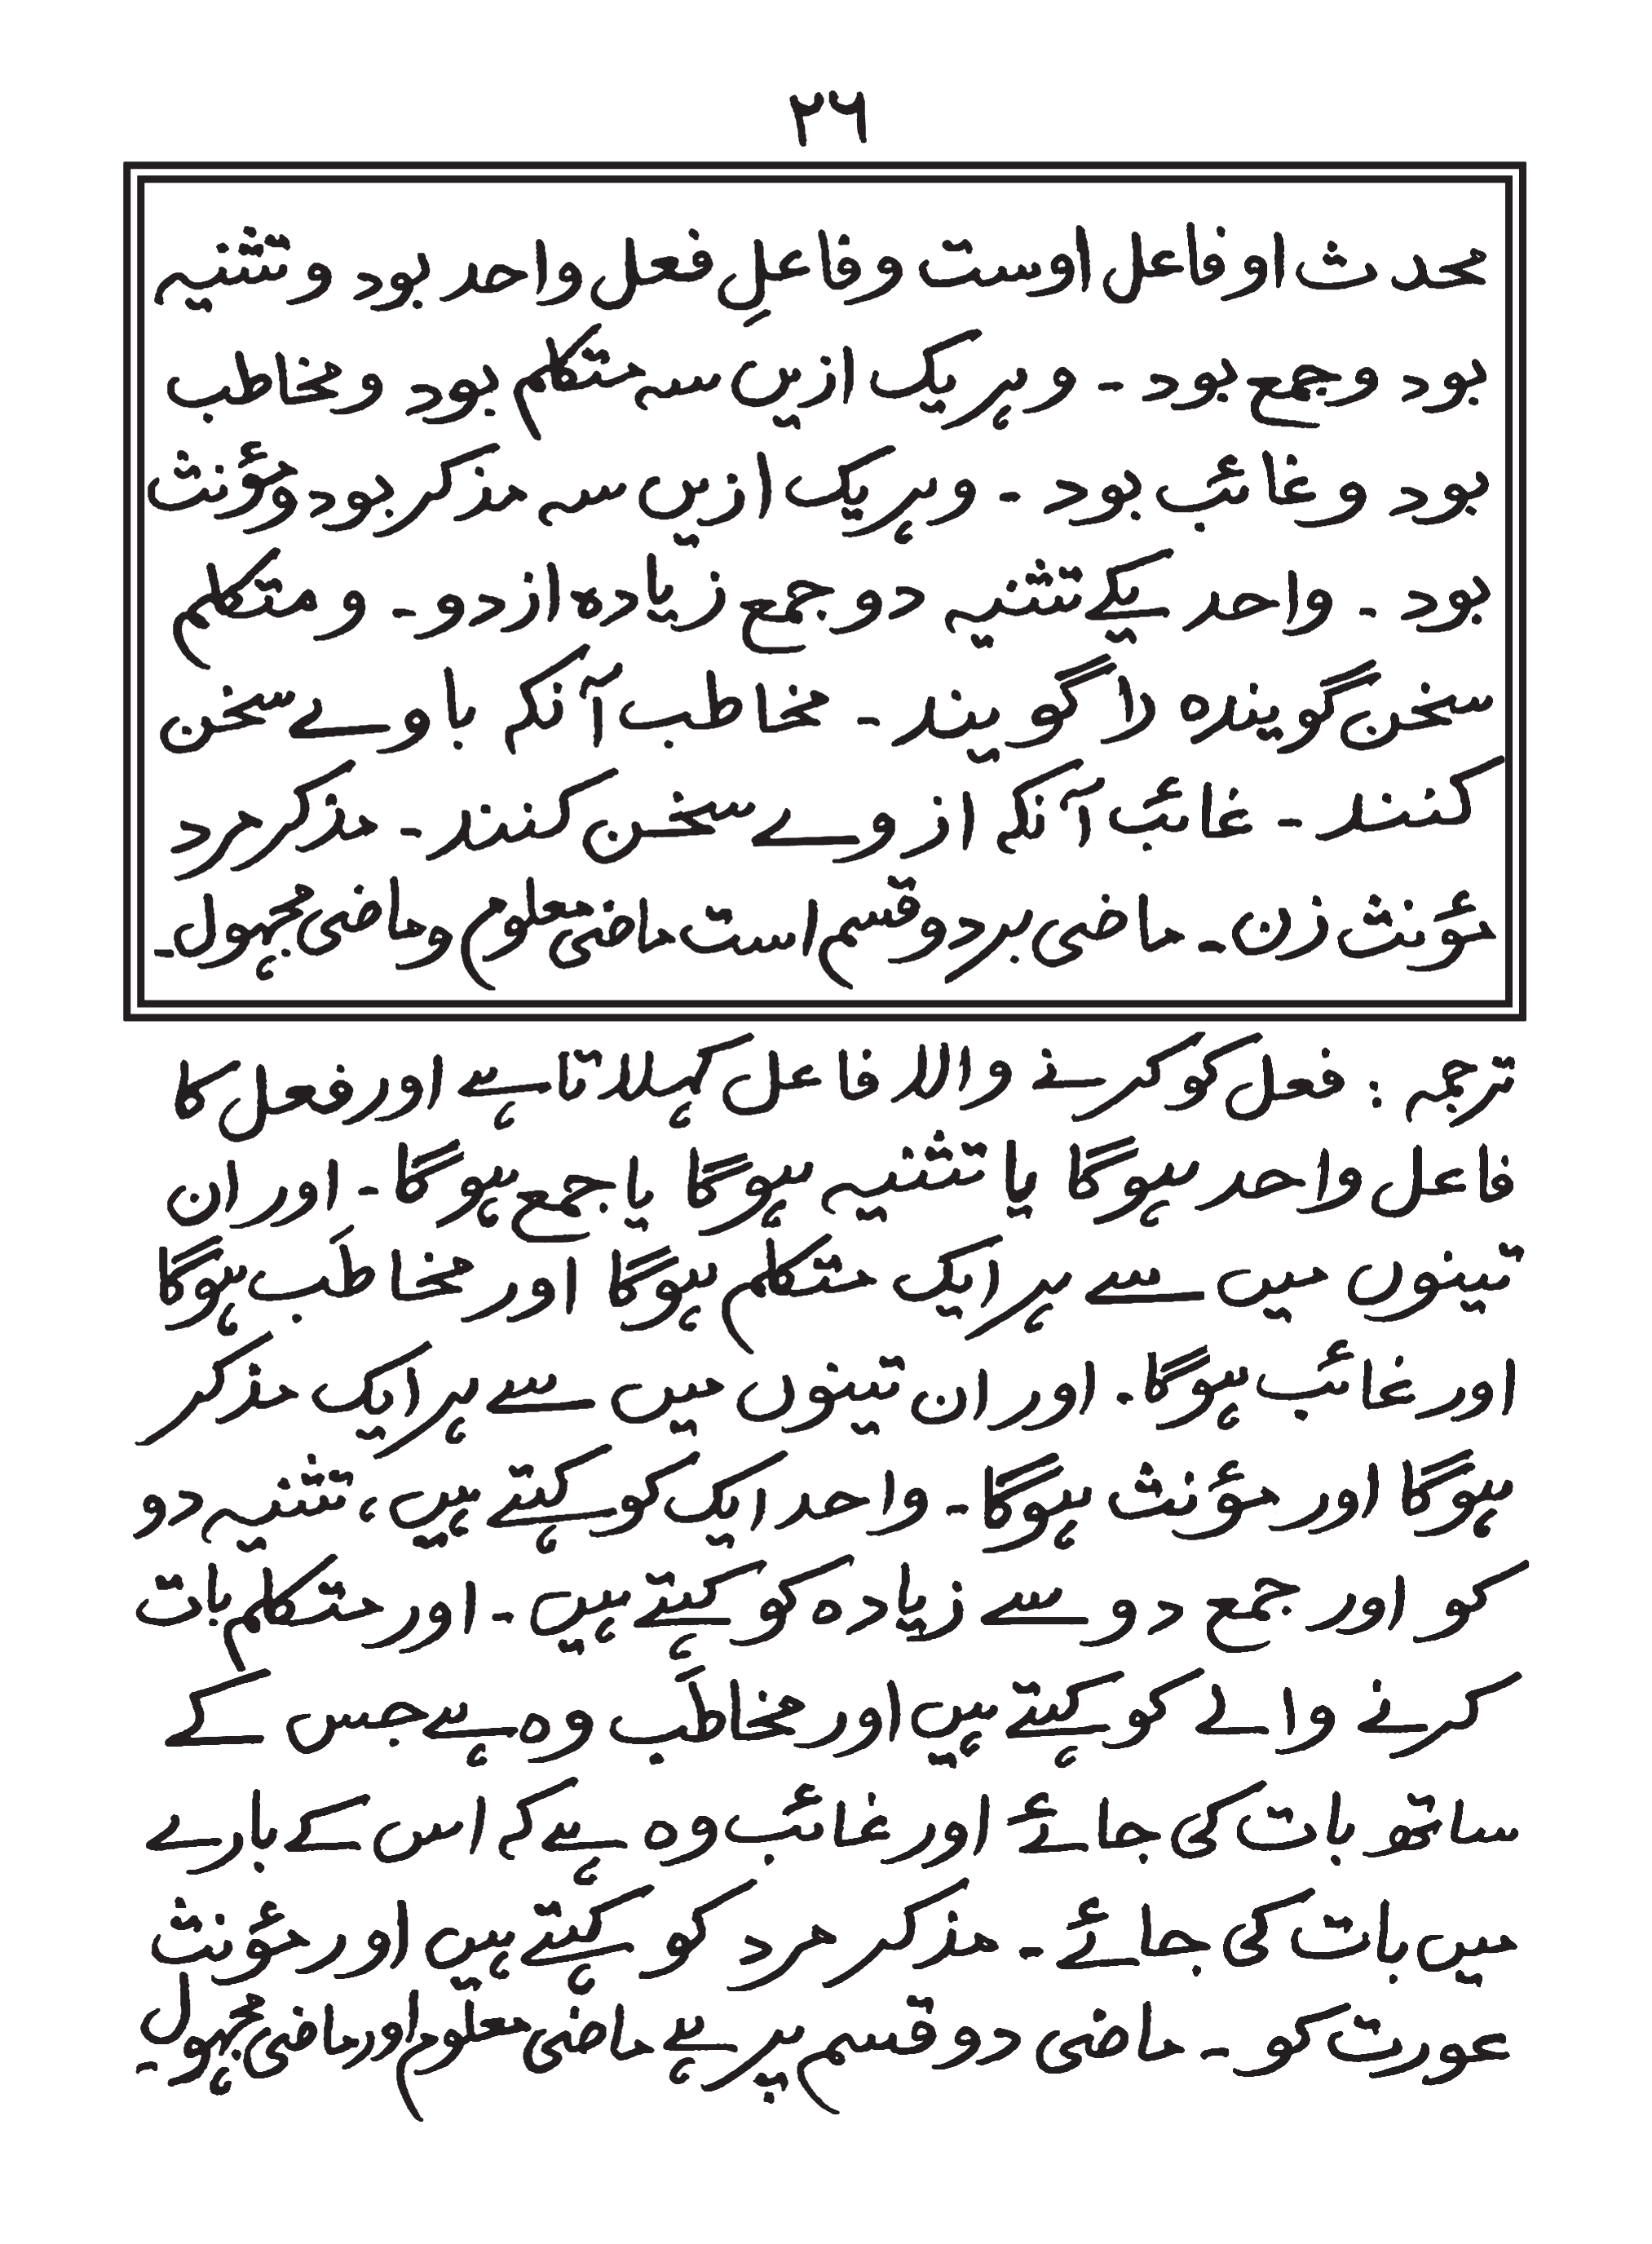 ٢٦
محدث او فاعل اوست و فاعلِ فعل واحد بود و تثنیہ
بود و جمع بود ۔ و ہر یک ازیں سہ متکلم بود و مخاطب
بود و غائب بود ۔ و ہر یک ازیں سہ مذکر بود و مؤنث
بود ۔ واحد یکے تثنیہ دو جمع زیادہ از دو ۔ و متکلم
سخن گویندہ را گویند ۔ مخاطب آنکہ با وے سخن
کنند ۔ غائب آنکہ از وے سخن کنند ۔ مذکر مرد
مؤنث زن ۔ ماضی بر دو قسم است ماضی معلوم و ماضی مجہول ۔
ترجمہ : فعل کو کرنے والا فاعل کہلاتا ہے اور فعل کا
فاعل واحد ہوگا یا تثنیہ ہوگا یا جمع ہوگا ۔ اور ان
تینوں میں سے ہر ایک متکلم ہوگا اور مخاطَب ہوگا
اور غائب ہوگا ۔ اور ان تینوں میں سے ہر ایک مذکر
ہوگا اور مؤنث ہوگا ۔ واحد ایک کو کہتے ہیں ، تثنیہ دو
کو اور جمع دو سے زیادہ کو کہتے ہیں ۔ اور متکلم بات
کرنے والے کو کہتے ہیں اور مخاطَب وہ ہے جس کے
ساتھ بات کی جائے اور غائب وہ ہے کہ اس کے بارے
میں بات کی جائے ۔ مذکر مرد کو کہتے ہیں اور مؤنث
عورت کو ۔ ماضی دو قسم پر ہے ماضی معلوم اور ماضی مجہول ۔